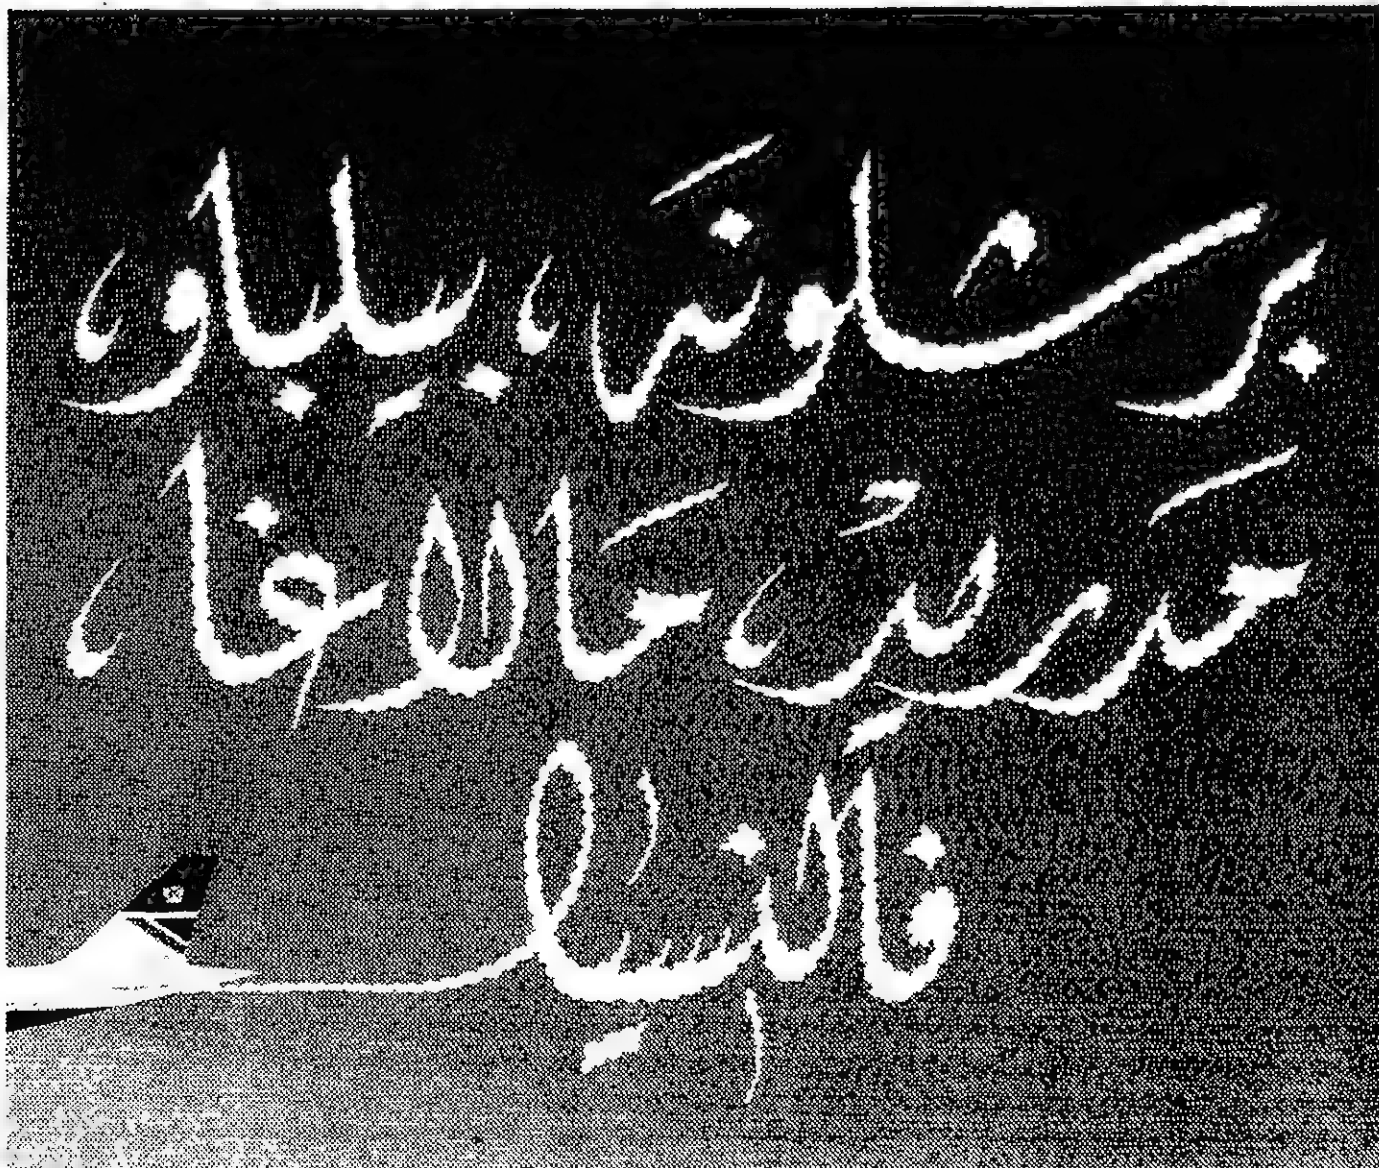 برشلونه، بيلباو،
مدريد، مالاغا،
فالنسيا